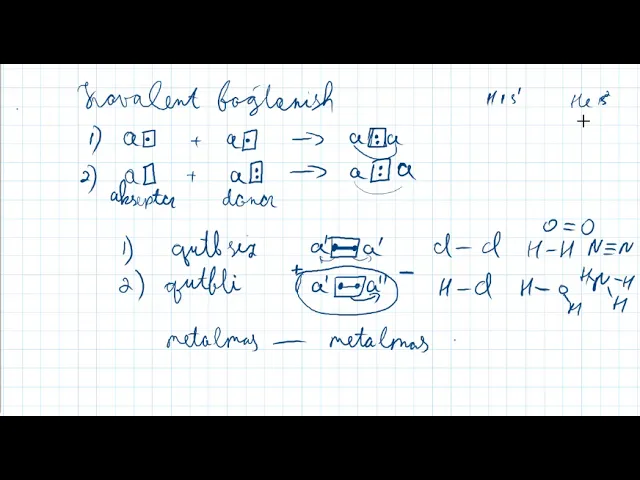 Kovalent bog'lanish H 1s¹ He 1s²
1) a[·] + a[·] → a[:]a
2) a[ ] + a[:] → a[:]a
akseptor donor
O=O
1) qutbsiz a' a' Cl—Cl H—H N≡N
2) qutbli + a' a'' — H—Cl H—O H H N—H H
metalmas — metalmas